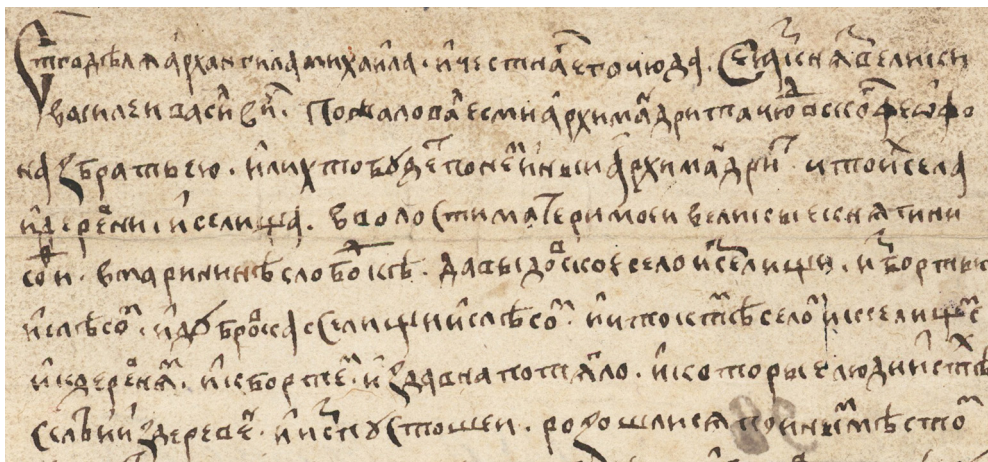 Ст҃го дѣля архангила михаила. и честнаг его чюда. Се яз кнѧз великии
василеи васил҃ьевич. Пожаловал есми архимандрита чюдовского феѡфо
на з братьею. или хто будет по нем иныи архимандрит. и што их села
и деревни. и селища. в волости матери моеи великые кнѧгини
софьи. в марининѣ слободкѣ. давыдовское село и с селищи. и з бортью
и с лѣсом. и да оброка с селищи и с лѣсом. и што к тѣм селом и к селищем
и к деревням. и к бортем. из давна потягло. и которые люди ис тѣх
сел и из деревень. и ис пустошеи. розошлися по иным мѣстом